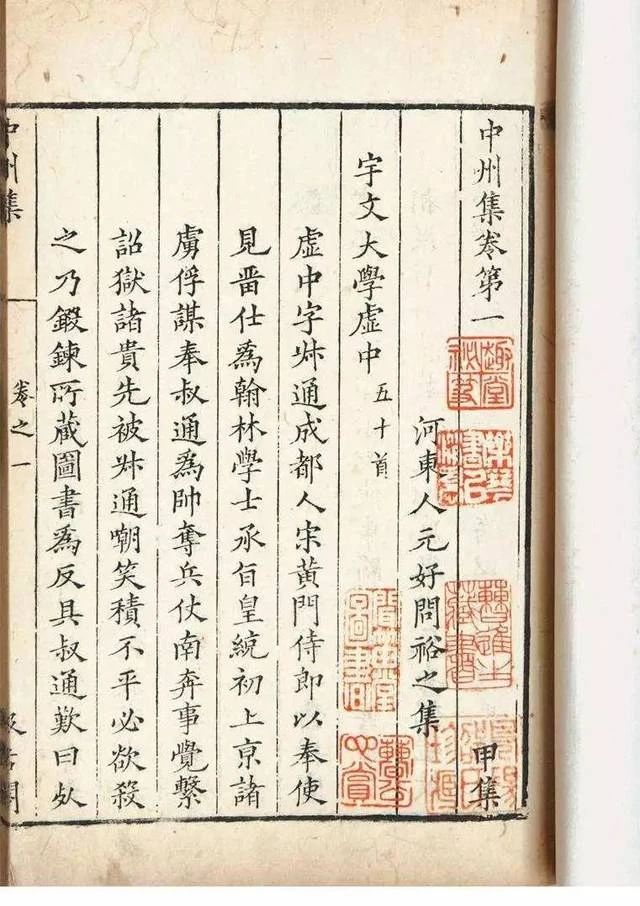 中州集卷第一
甲集
河東人元好問裕之集
宇文大學虛中 五十首
虛中字叔通成都人宋黃門侍郎以奉使
見畱仕爲翰林學士承旨皇統初上京諸
虜俘謀奉叔通爲帥奪兵仗南奔事覺繫
詔獄諸貴先被叔通嘲笑積不平必欲殺
之乃鍛鍊所藏圖書爲反具叔通歎曰死
中州集
卷之一
汲古閣